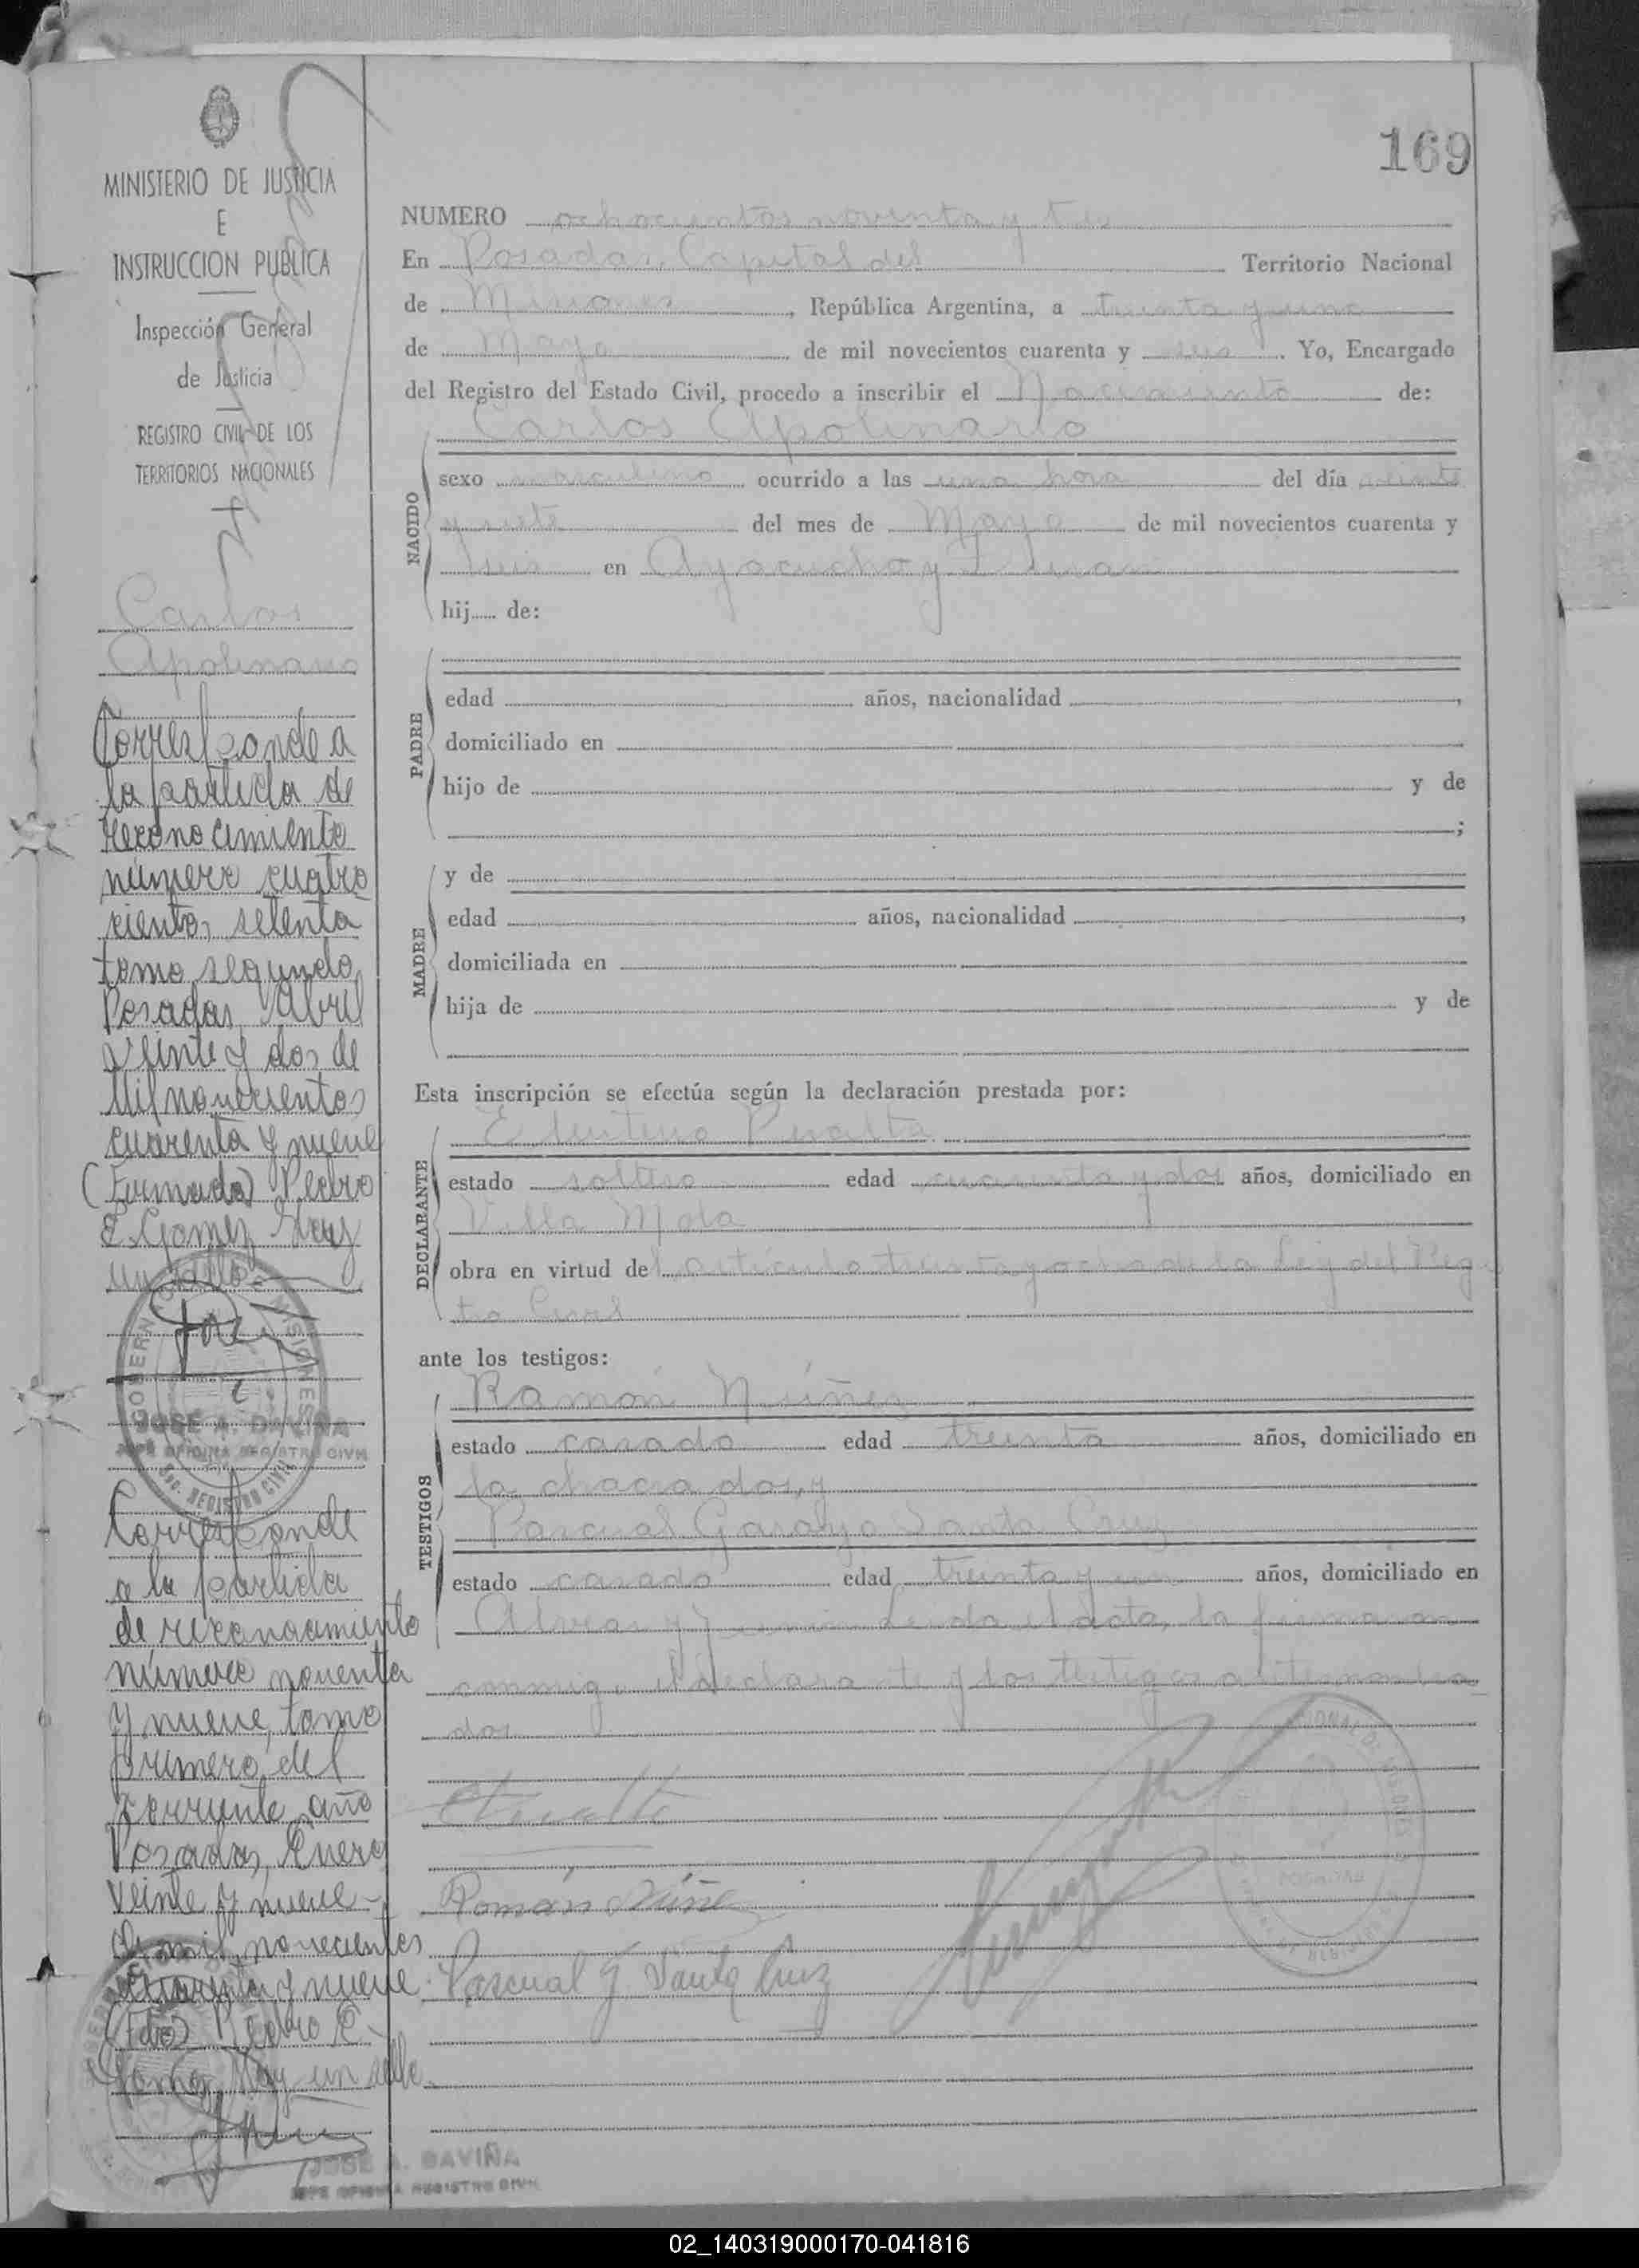 169
MINISTERIO DE JUSTICIA
E
INSTRUCCION PUBLICA
Inspección General
de Justicia
REGISTRO CIVIL DE LOS
TERRITORIOS NACIONALES
Carlos
Apolinario
Corresponde a
la partida de
reconocimiento
número cuatro
cientos setenta
tomo segundo
Posadas Abril
veinte y dos de
Mil novecientos
cuarenta y nueve
(Firmado) Pedro
E. Gomez Hay
un sello
GOBERNACION DE MISIONES
JOSÉ A. DAVIÑA
JEFE OFICINA REGISTRO CIVIL
Corresponde
a la partida
de reconocimiento
número noventa
y nueve, tomo
primero del
corriente año
Posadas, Enero
veinte y nueve
de mil novecientos
cuarenta y nueve
(Fdo) Pedro E.
Gomez Hay un sello
JOSÉ A. DAVIÑA
JEFE OFICINA REGISTRO CIVIL
NUMERO ochocientos noventa y tres
En Posadas, Capital del Territorio Nacional
de Misiones, República Argentina, a treinta y uno
de Mayo de mil novecientos cuarenta y seis. Yo, Encargado
del Registro del Estado Civil, procedo a inscribir el Nacimiento de:
Carlos Apolinario
NACIDO
sexo masculino ocurrido a las una hora del día veinte
y siete del mes de Mayo de mil novecientos cuarenta y
seis en Ayacucho y
hij..... de:
PADRE
edad años, nacionalidad ,
domiciliado en
hijo de y de
;
MADRE
y de
edad años, nacionalidad ,
domiciliada en
hija de y de
Esta inscripción se efectúa según la declaración prestada por:
DECLARANTE
Peralta
estado soltero edad cuarenta y dos años, domiciliado en
Villa Mola
obra en virtud del artículo treinta y ocho de la Ley del Regis
tro Civil
ante los testigos:
TESTIGOS
Ramon Núñez
estado casado edad treinta años, domiciliado en
la chacra dos, y
Pascual Garayo Santa Cruz
estado casado edad treinta y un años, domiciliado en
Alvear y Junin Leida el acta, la firmaron
conmigo el declarante y los testigos antenombra
dos
Román Núñez
Pascual G. Santa Cruz
02_140319000170-041816